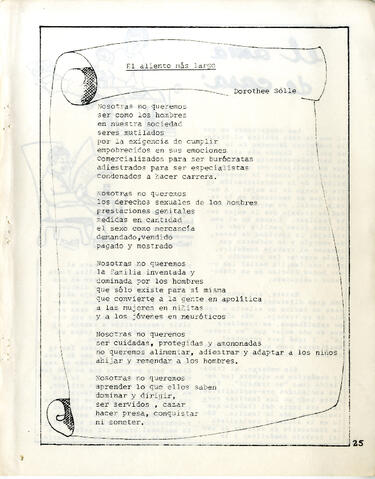 El aliento más largo
Dorothee Sölle
Nosotras no queremos
ser como los hombres
en nuestra sociedad
seres mutilados
por la exigencia de cumplir
empobrecidos en sus emociones
Comercializados para ser burócratas
adiestrados para ser especialistas
condenados a hacer carrera.
Nosotras no queremos
los derechos sexuales de los hombres
prestaciones genitales
medidas en cantidad
el sexo como mercancía
demandado,vendido
pagado y mostrado
Nosotras no queremos
la familia inventada y
dominada por los hombres
que sólo existe para sí misma
que convierte a la gente en apolítica
a las mujeres en niñitas
y a los jóvenes en neuróticos
Nosotras no queremos
ser cuidadas, protegidas y amononadas
no queremos alimentar, adiestrar y adaptar a los niños
ahijar y remendar a los hombres.
Nosotras no queremos
aprender lo que ellos saben
dominar y dirigir,
ser servidos , cazar
hacer presa, conquistar
ni someter.
25